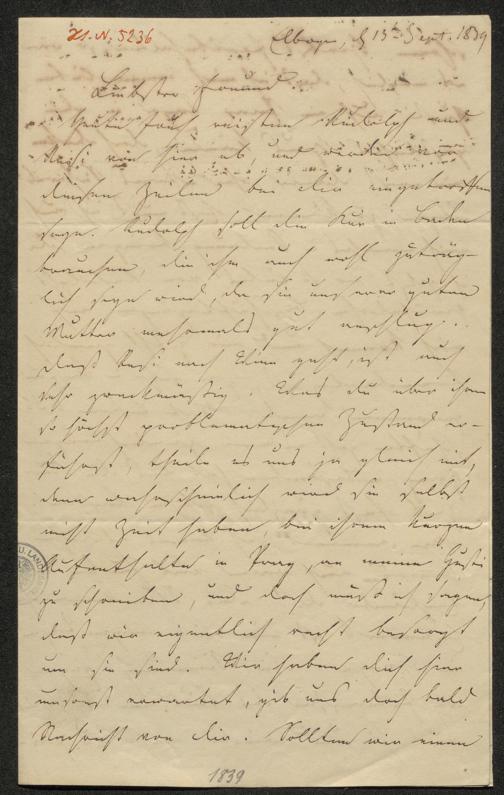 H. N. 5236
Elbogen, d 13t Sept. 1839
Liebster Freund!
Heute früh reisten Rudolph und
Resi von hier ab, und werden vor
diesen Zeilen bei dir eingetroffen
seyn. Rudolph soll die Kur in Baden
brauchen die ihm auch wohl zuträg-
lich seyn wird, da sie unserer guten
Mutter mehrmals gut anschlug.
Daß Resi nach Wien geht, ist auch
sehr zweckmäßig. Was du über ihren
so höchst problematischen Zustand er-
fährst, theile es uns ja gleich mit,
denn wahrscheinlich wird sie selbst
nicht Zeit haben, bei ihrem kurzen
Aufenthalte in Prag, an meine Gusti
zu schreiben, und doch muß ich sagen,
daß wir eigentlich recht besorgt
um sie sind. Wir haben dich hier
umsonst erwartet, gib uns doch bald
Nachricht von dir. Sollten wir einen
1839